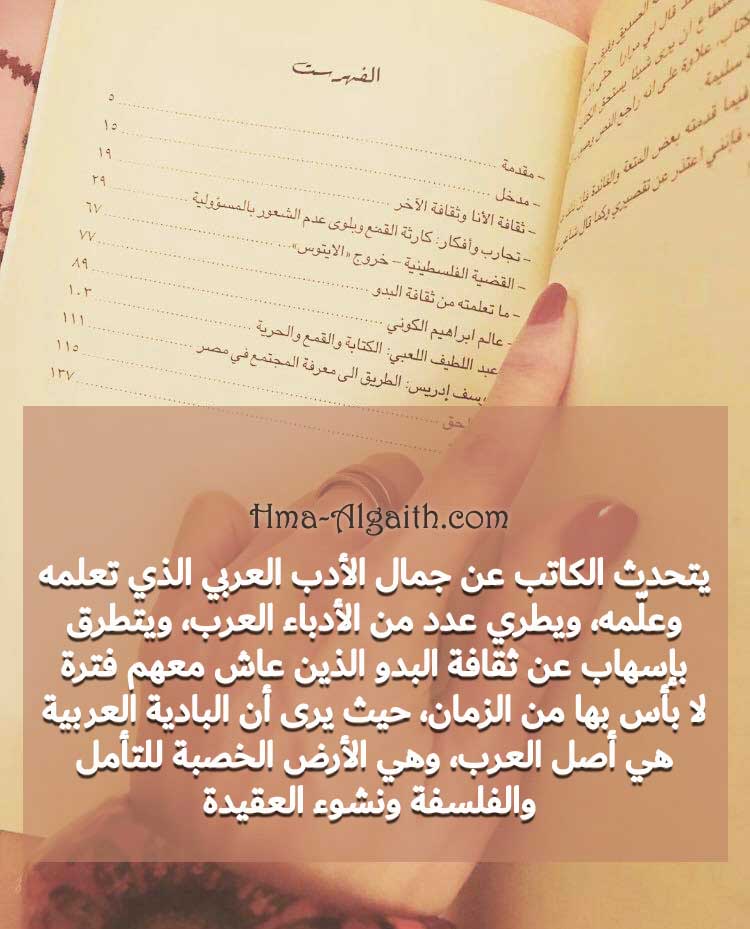 قال لي مرارا حتى
أن يرى شيئا يستحق
علاوة على انه راجع النص
سليمة.
فيما قدمته بعض المتعة والفائدة
فإنني أعتذر عن تقصيري وكما قال
الفهرست
- مقدمة ٥
- مدخل ١٥
- ثقافة الأنا وثقافة الآخر ١٩
- تجارب وأفكار: كارثة القمع وبلوى عدم الشعور بالمسؤولية ٢٩
- القضية الفلسطينية – خروج «الايتوس» ٦٧
- ما تعلمته من ثقافة البدو ٧٧
- عالم ابراهيم الكوني ٨٩
عبد اللطيف اللعبي: الكتابة والقمع والحرية ١٠٣
سف إدريس: الطريق الى معرفة المجتمع في مصر ١١١
حق ١١٥
١٣٧
Hma-Algaith.com
يتحدث الكاتب عن جمال الأدب العربي الذي تعلمه
وعلّمه، ويطري عدد من الأدباء العرب، ويتطرق
بإسهاب عن ثقافة البدو الذين عاش معهم فترة
لا بأس بها من الزمان، حيث يرى أن البادية العربية
هي أصل العرب، وهي الأرض الخصبة للتأمل
والفلسفة ونشوء العقيدة